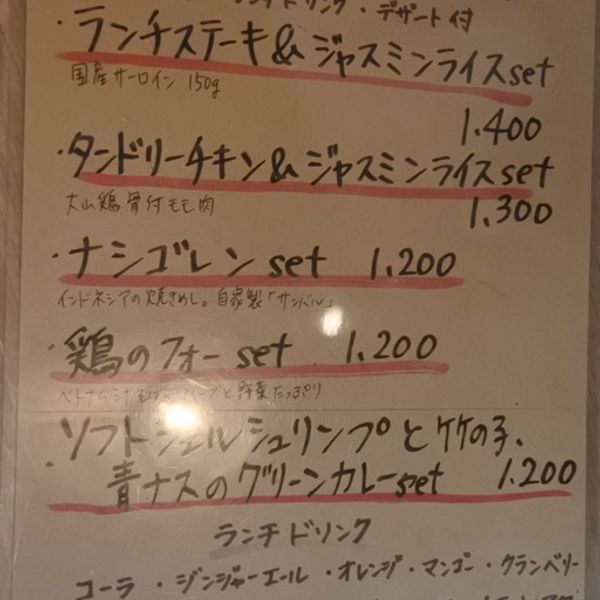 ランチドリンク・デザート付
・ランチステーキ&ジャスミンライスset
国産サーロイン 150g
1.400
・タンドリーチキン&ジャスミンライスset
大山鶏骨付モモ肉
1.300
・ナシゴレンset 1.200
インドネシアの焼きめし。自家製「サンバル」
・鶏のフォーset 1.200
ベトナム と野菜たっぷり
・ソフトシェルシュリンプと竹の子、
青ナスのグリーンカレーset 1.200
ランチドリンク
コーラ・ジンジャーエール・オレンジ・マンゴー・クランベリー